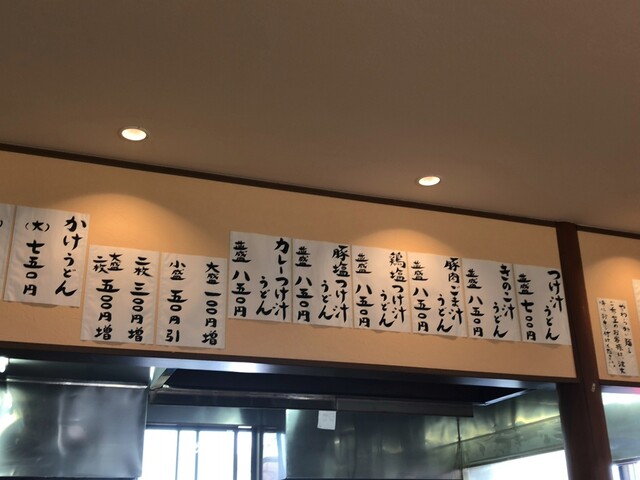 つけ汁
うどん
並盛 七〇〇円
きのこ汁
うどん
並盛 八五〇円
豚肉ごま汁
うどん
並盛 八五〇円
鶏塩つけ汁
うどん
並盛 八五〇円
豚塩つけ汁
うどん
並盛 八五〇円
カレーつけ汁
うどん
並盛 八五〇円
大盛 一〇〇円増
小盛 五〇円引
二枚 三〇〇円増
大盛
二枚 五〇〇円増
かけうどん
(大) 七五〇円